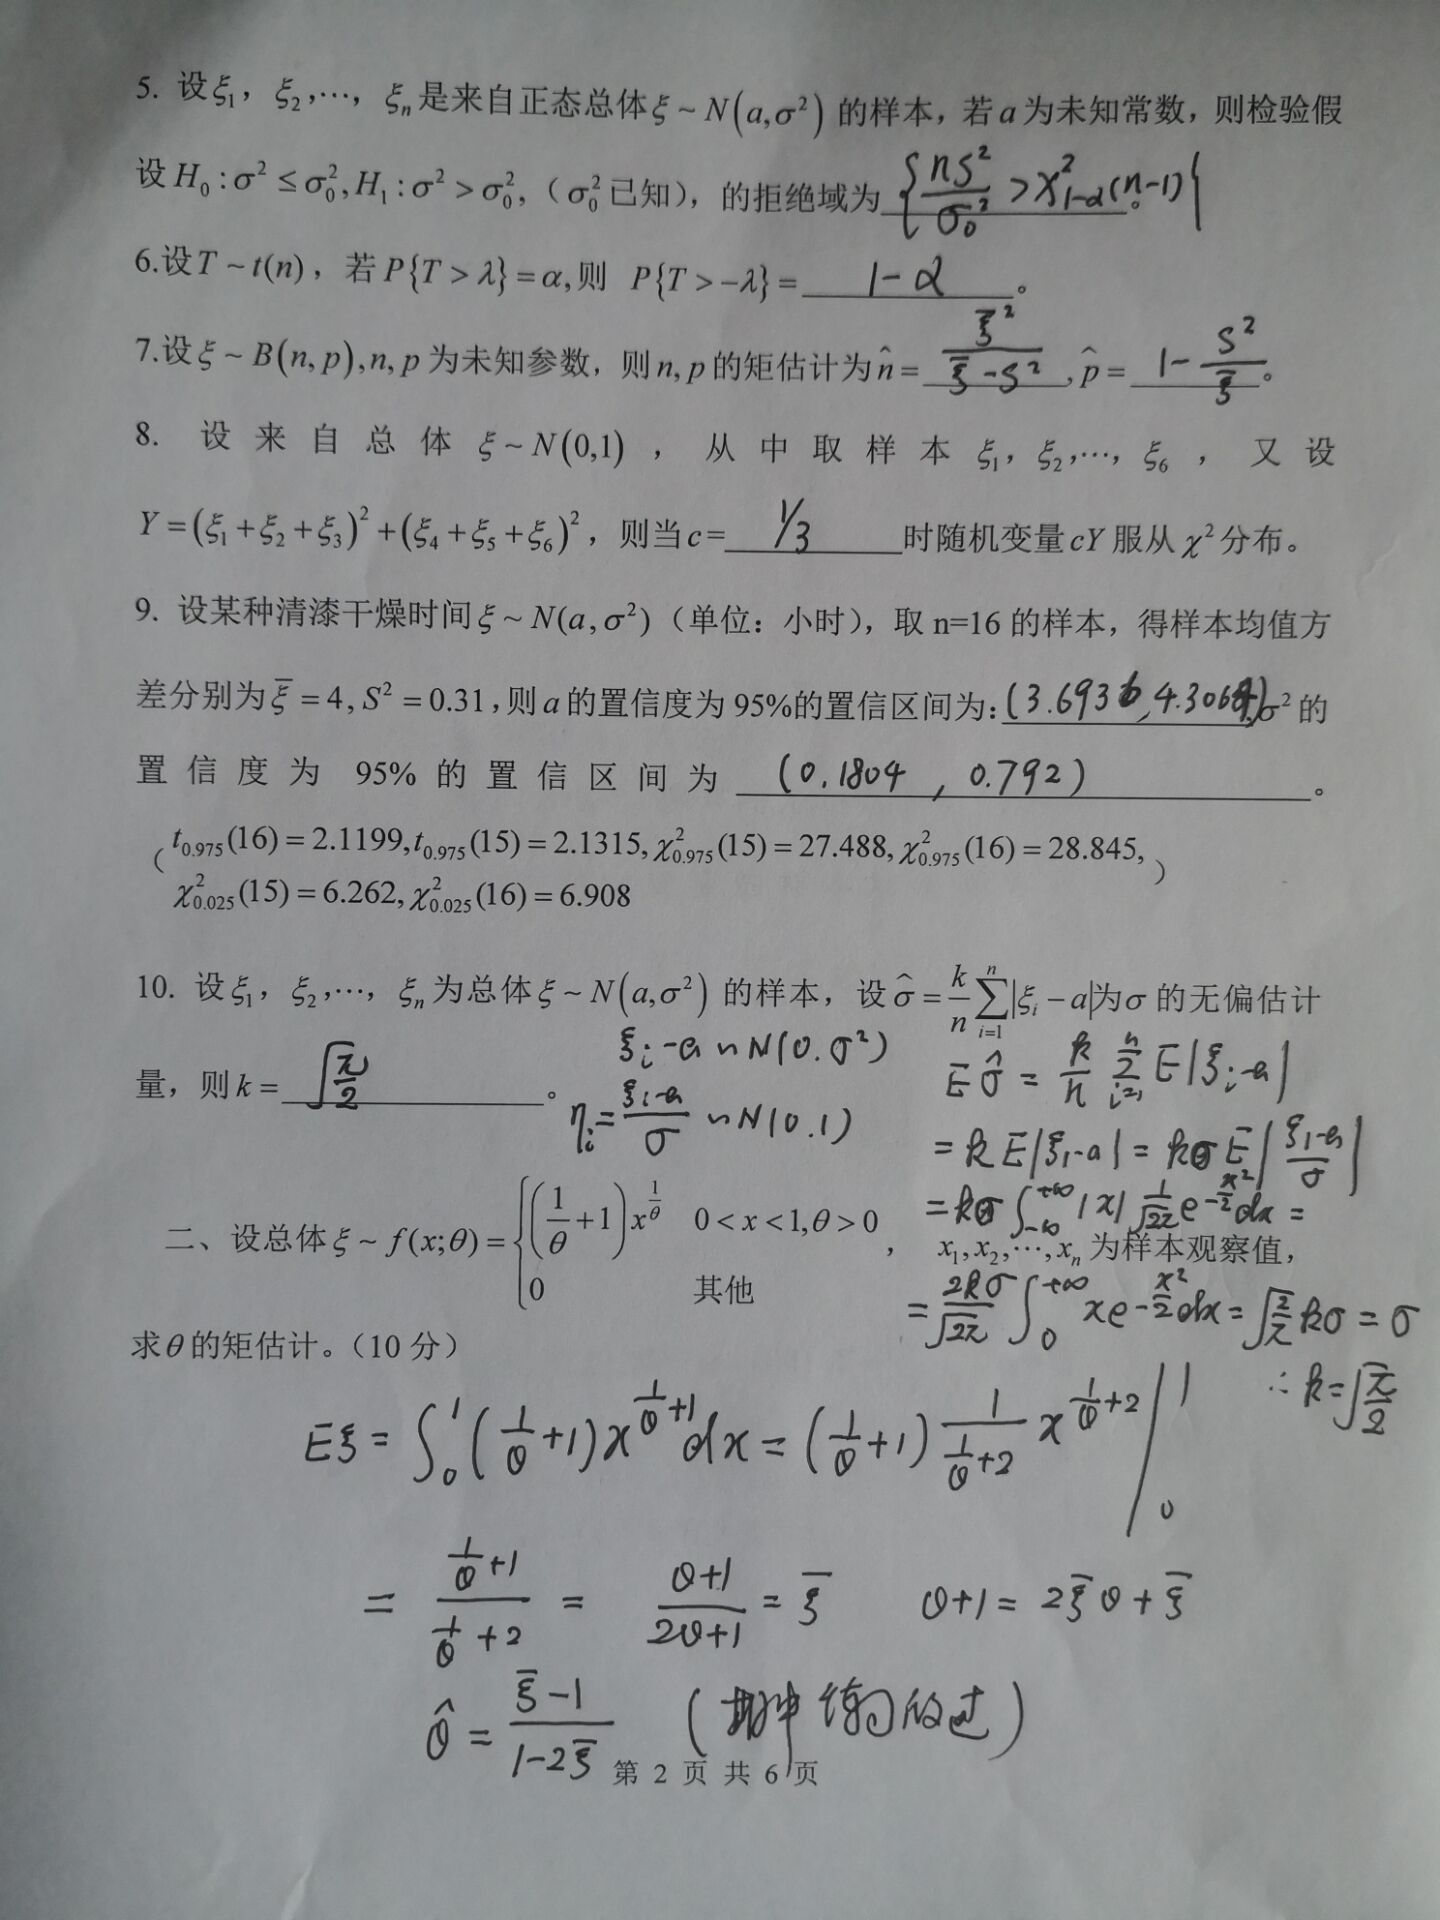 5. 设ξ₁, ξ₂,⋯, ξₙ是来自正态总体ξ ~ N(a,σ²) 的样本，若a为未知常数，则检验假
设H₀ : σ² ≤ σ₀², H₁ : σ² > σ₀²,（σ₀²已知），的拒绝域为 {nS²/σ₀² > χ²₁₋α(n-1)} 。
6.设T ~ t(n)，若P{T > λ} = α,则 P{T > −λ} = 1-α 。
7.设ξ ~ B(n, p), n, p为未知参数，则n, p的矩估计为n̂ = ξ̄²/(ξ̄-S²) , p̂ = 1-S²/ξ̄ 。
8. 设来自总体ξ ~ N(0,1)，从中取样本ξ₁, ξ₂,⋯, ξ₆，又设
Y = (ξ₁ + ξ₂ + ξ₃)² + (ξ₄ + ξ₅ + ξ₆)²，则当c = 1/3 时随机变量cY 服从 χ²分布。
9. 设某种清漆干燥时间ξ ~ N(a,σ²)（单位：小时），取 n=16 的样本，得样本均值方
差分别为ξ̄ = 4, S² = 0.31,则a的置信度为 95%的置信区间为: (3.6936, 4.3064) σ²的
置信度为 95%的置信区间为 (0.1804 , 0.792) 。
（t₀.₉₇₅(16) = 2.1199, t₀.₉₇₅(15) = 2.1315, χ²₀.₉₇₅(15) = 27.488, χ²₀.₉₇₅(16) = 28.845,
χ²₀.₀₂₅(15) = 6.262, χ²₀.₀₂₅(16) = 6.908）
10. 设ξ₁, ξ₂,⋯, ξₙ为总体ξ ~ N(a,σ²) 的样本，设σ̂ = k/n ∑ᵢ₌₁ⁿ |ξᵢ − a|为σ 的无偏估计
量，则k = √(π/2) 。
ξᵢ-a ~ N(0.σ²)
ηᵢ = (ξᵢ-a)/σ ~ N(0.1)
Eσ̂ = k/n ∑ᵢ₌₁ⁿ E|ξᵢ-a|
= kE|ξ₁-a| = kσE|(ξ₁-a)/σ|
= kσ∫₋∞⁺∞ |x| 1/√2π e^(-x²/2) dx =
= 2kσ/√2π ∫₀⁺∞ xe^(-x²/2) dx = √(2/π) kσ = σ
∴ k = √(π/2)
二、设总体ξ ~ f(x;θ) = { (1/θ + 1)x^(1/θ) 0 < x < 1,θ > 0 ， x₁, x₂,⋯, xₙ为样本观察值，
0 其他
求θ的矩估计。（10 分）
Eξ = ∫₀¹ (1/θ+1)x^(1/θ+1) dx = (1/θ+1) 1/(1/θ+2) x^(1/θ+2) |₀¹
= (1/θ+1)/(1/θ+2) = (θ+1)/(2θ+1) = ξ̄ θ+1 = 2ξ̄θ+ξ̄
θ̂ = (ξ̄-1)/(1-2ξ̄) (期中练习做过)
第 2 页 共 6 页